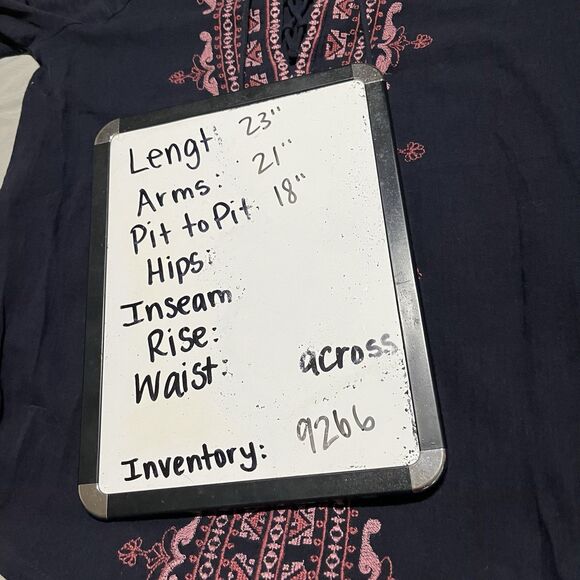 Lengt 23"
Arms: 21"
Pit to Pit 18"
Hips:
Inseam
Rise:
Waist: across
Inventory: 9266